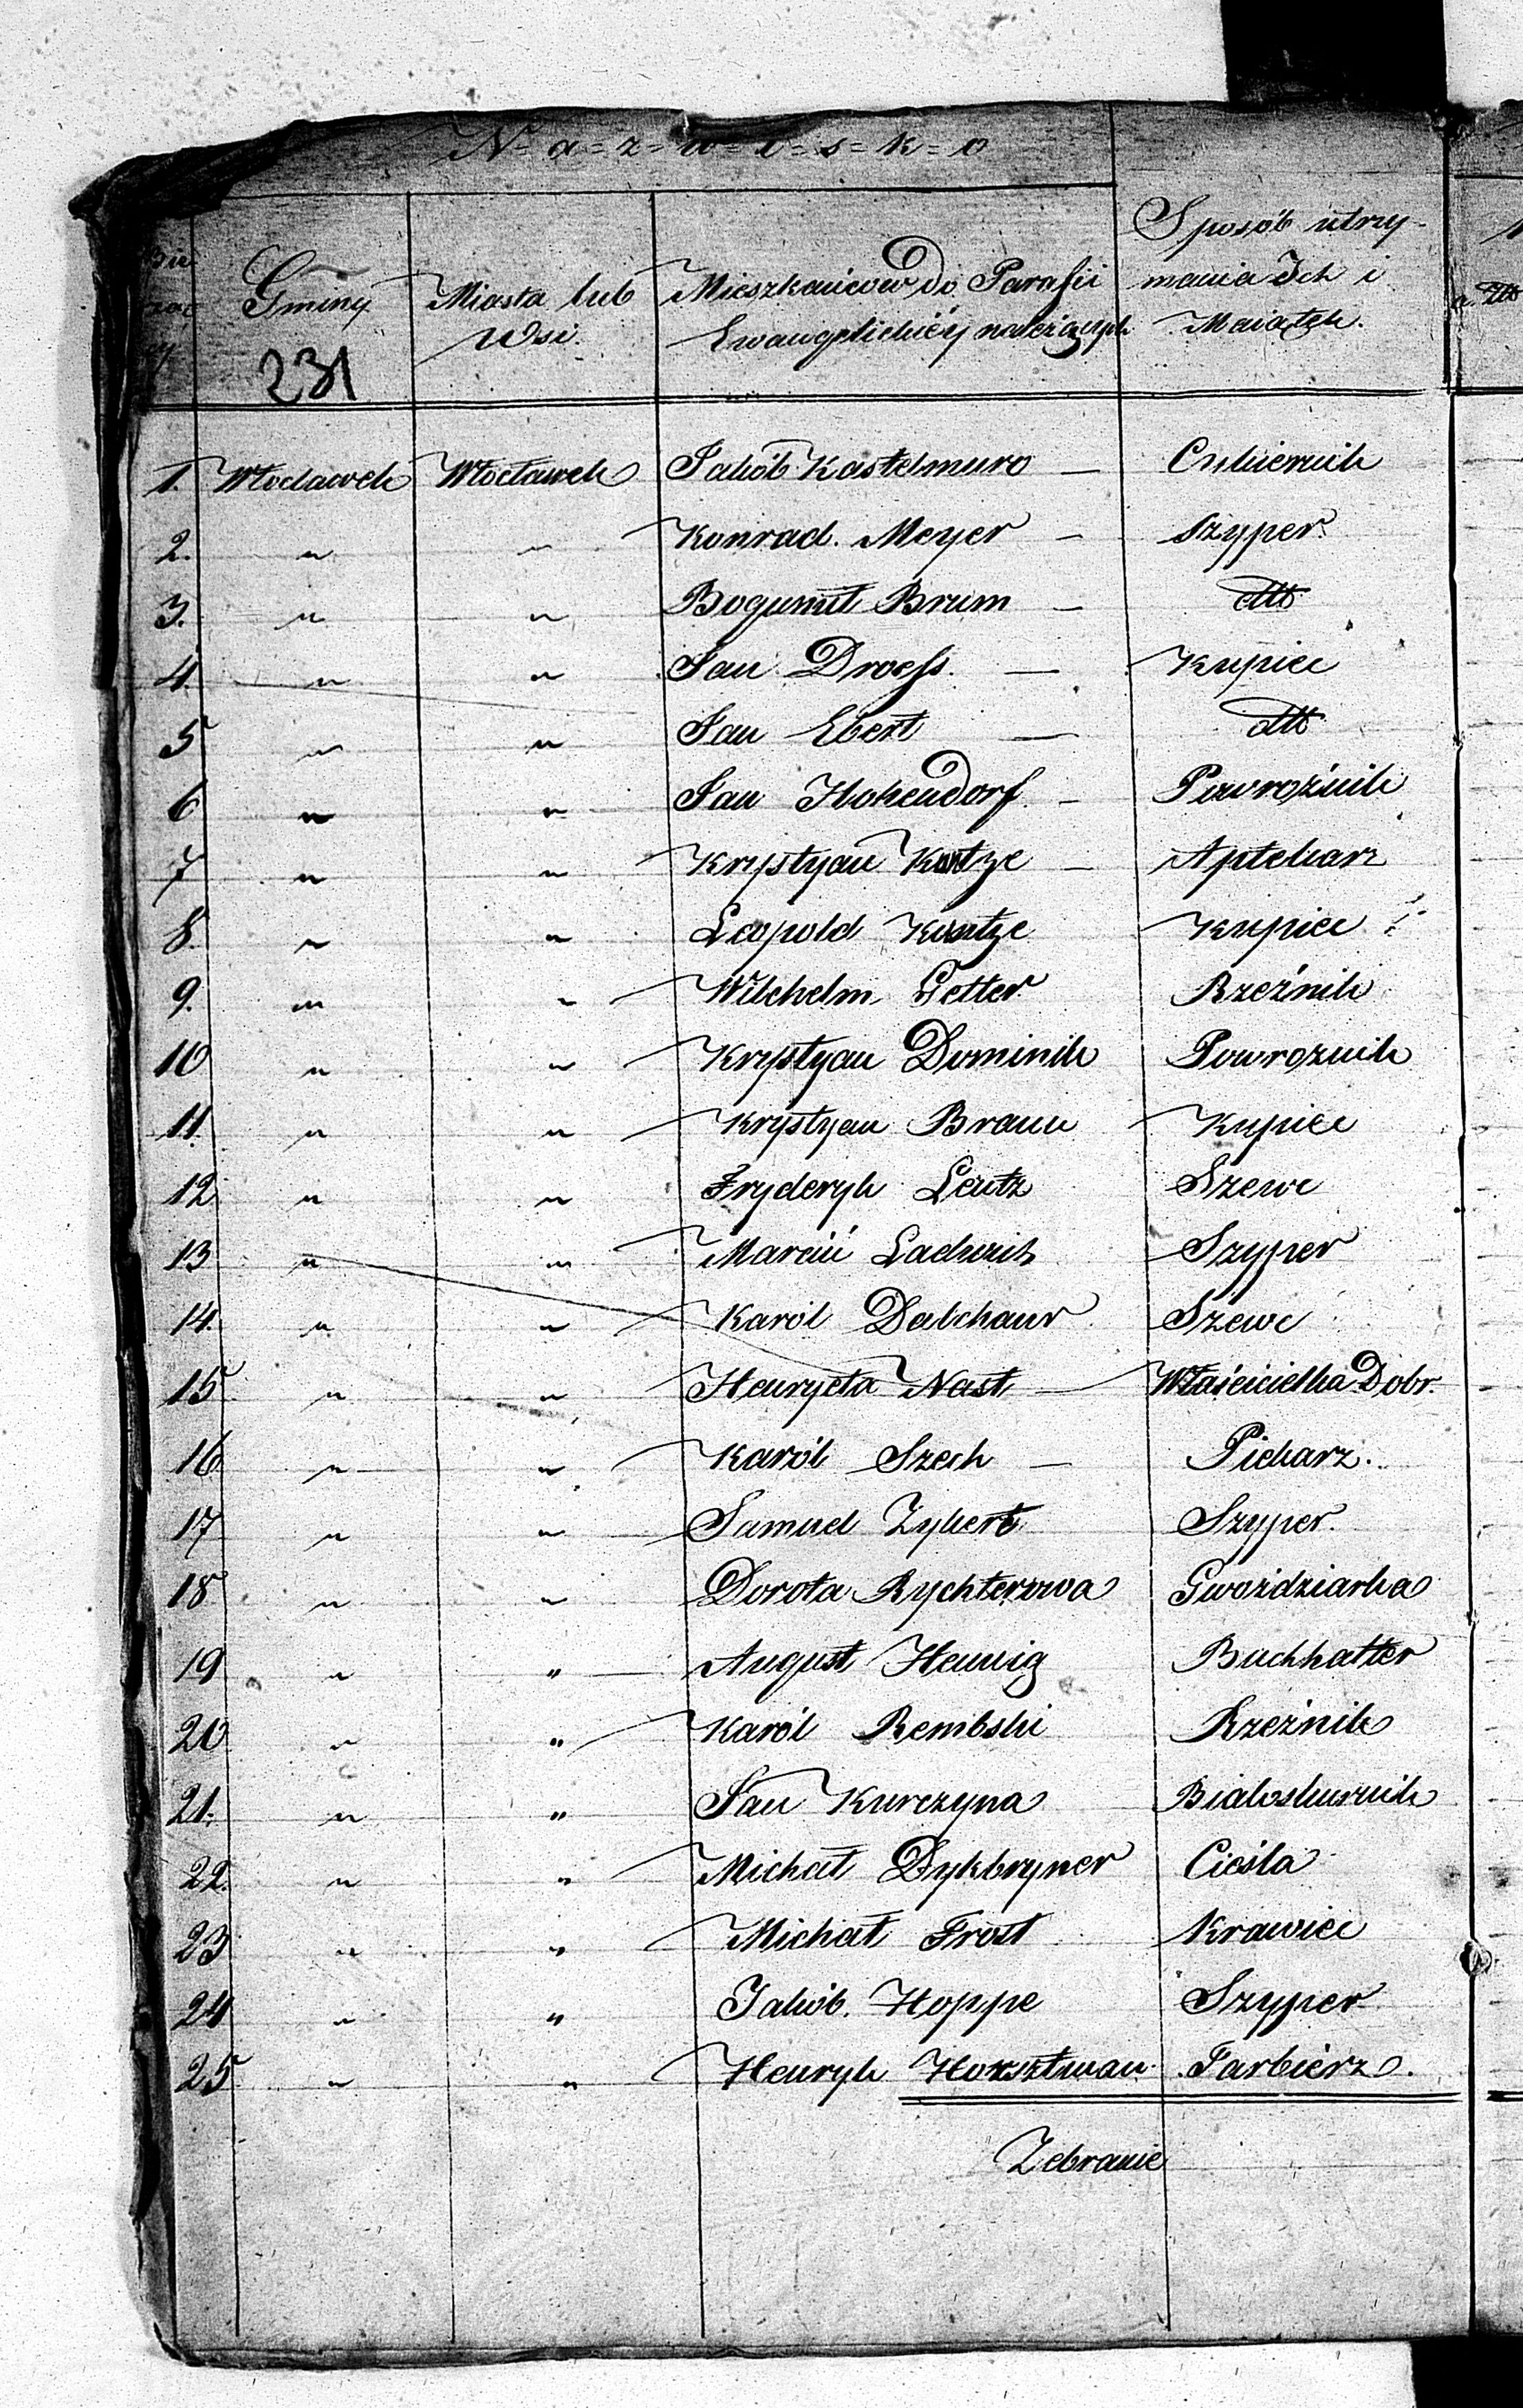 N=a=z=w=i=s=k=o
Gminy
Miasta lub
Wsi.
Mieszkańcow do Parafii
Ewangelickiéy należących
Sposób utrzy-
mania Ich i
Maiątek.
231
1. Włocławek Włocławek Jakób Kastelmuro — Cukiernik
2. " " Konrad Meyer — Szyper
3. " " Bogumił Brum — dtto
4. " " Jan Droess. — Kupiec
5 " " Jan Ebert — dtto
6 " " Jan Hohendorf — Powroźnik
7 " " Krystyan Kuntze — Aptekarz
8. " " Leopold Kuntze Kupiec
9. " " Wilchelm Letter Rzeźnik
10 " " Krystyan Dominik Powroznik
11. " " Krystyan Braun Kupiec
12 " " Fryderyk Lentz Szewc
13 " " Marcin Szyper
14. " " Karól Dalchaur Szewc
15 " " Henryeta Nast — Właścicielka Dobr.
16 " " Karól Szech — Piekarz.
17 " " Samuel Zybert Szyper.
18 " " Dorota Rychterowa Gwoździarka
19 " " August Hennig Buchhalter
20 " " Karól Rembski Rzeźnik
21. " " Jan Kurczyna Białoskurnik
22. " " Michał Dykbryner Cieśla
23 " " Michał Frost Krawiec
24 " " Jakób. Hoppe Szyper
25 " " Henryk Horsztman Farbierz.
Zebranie